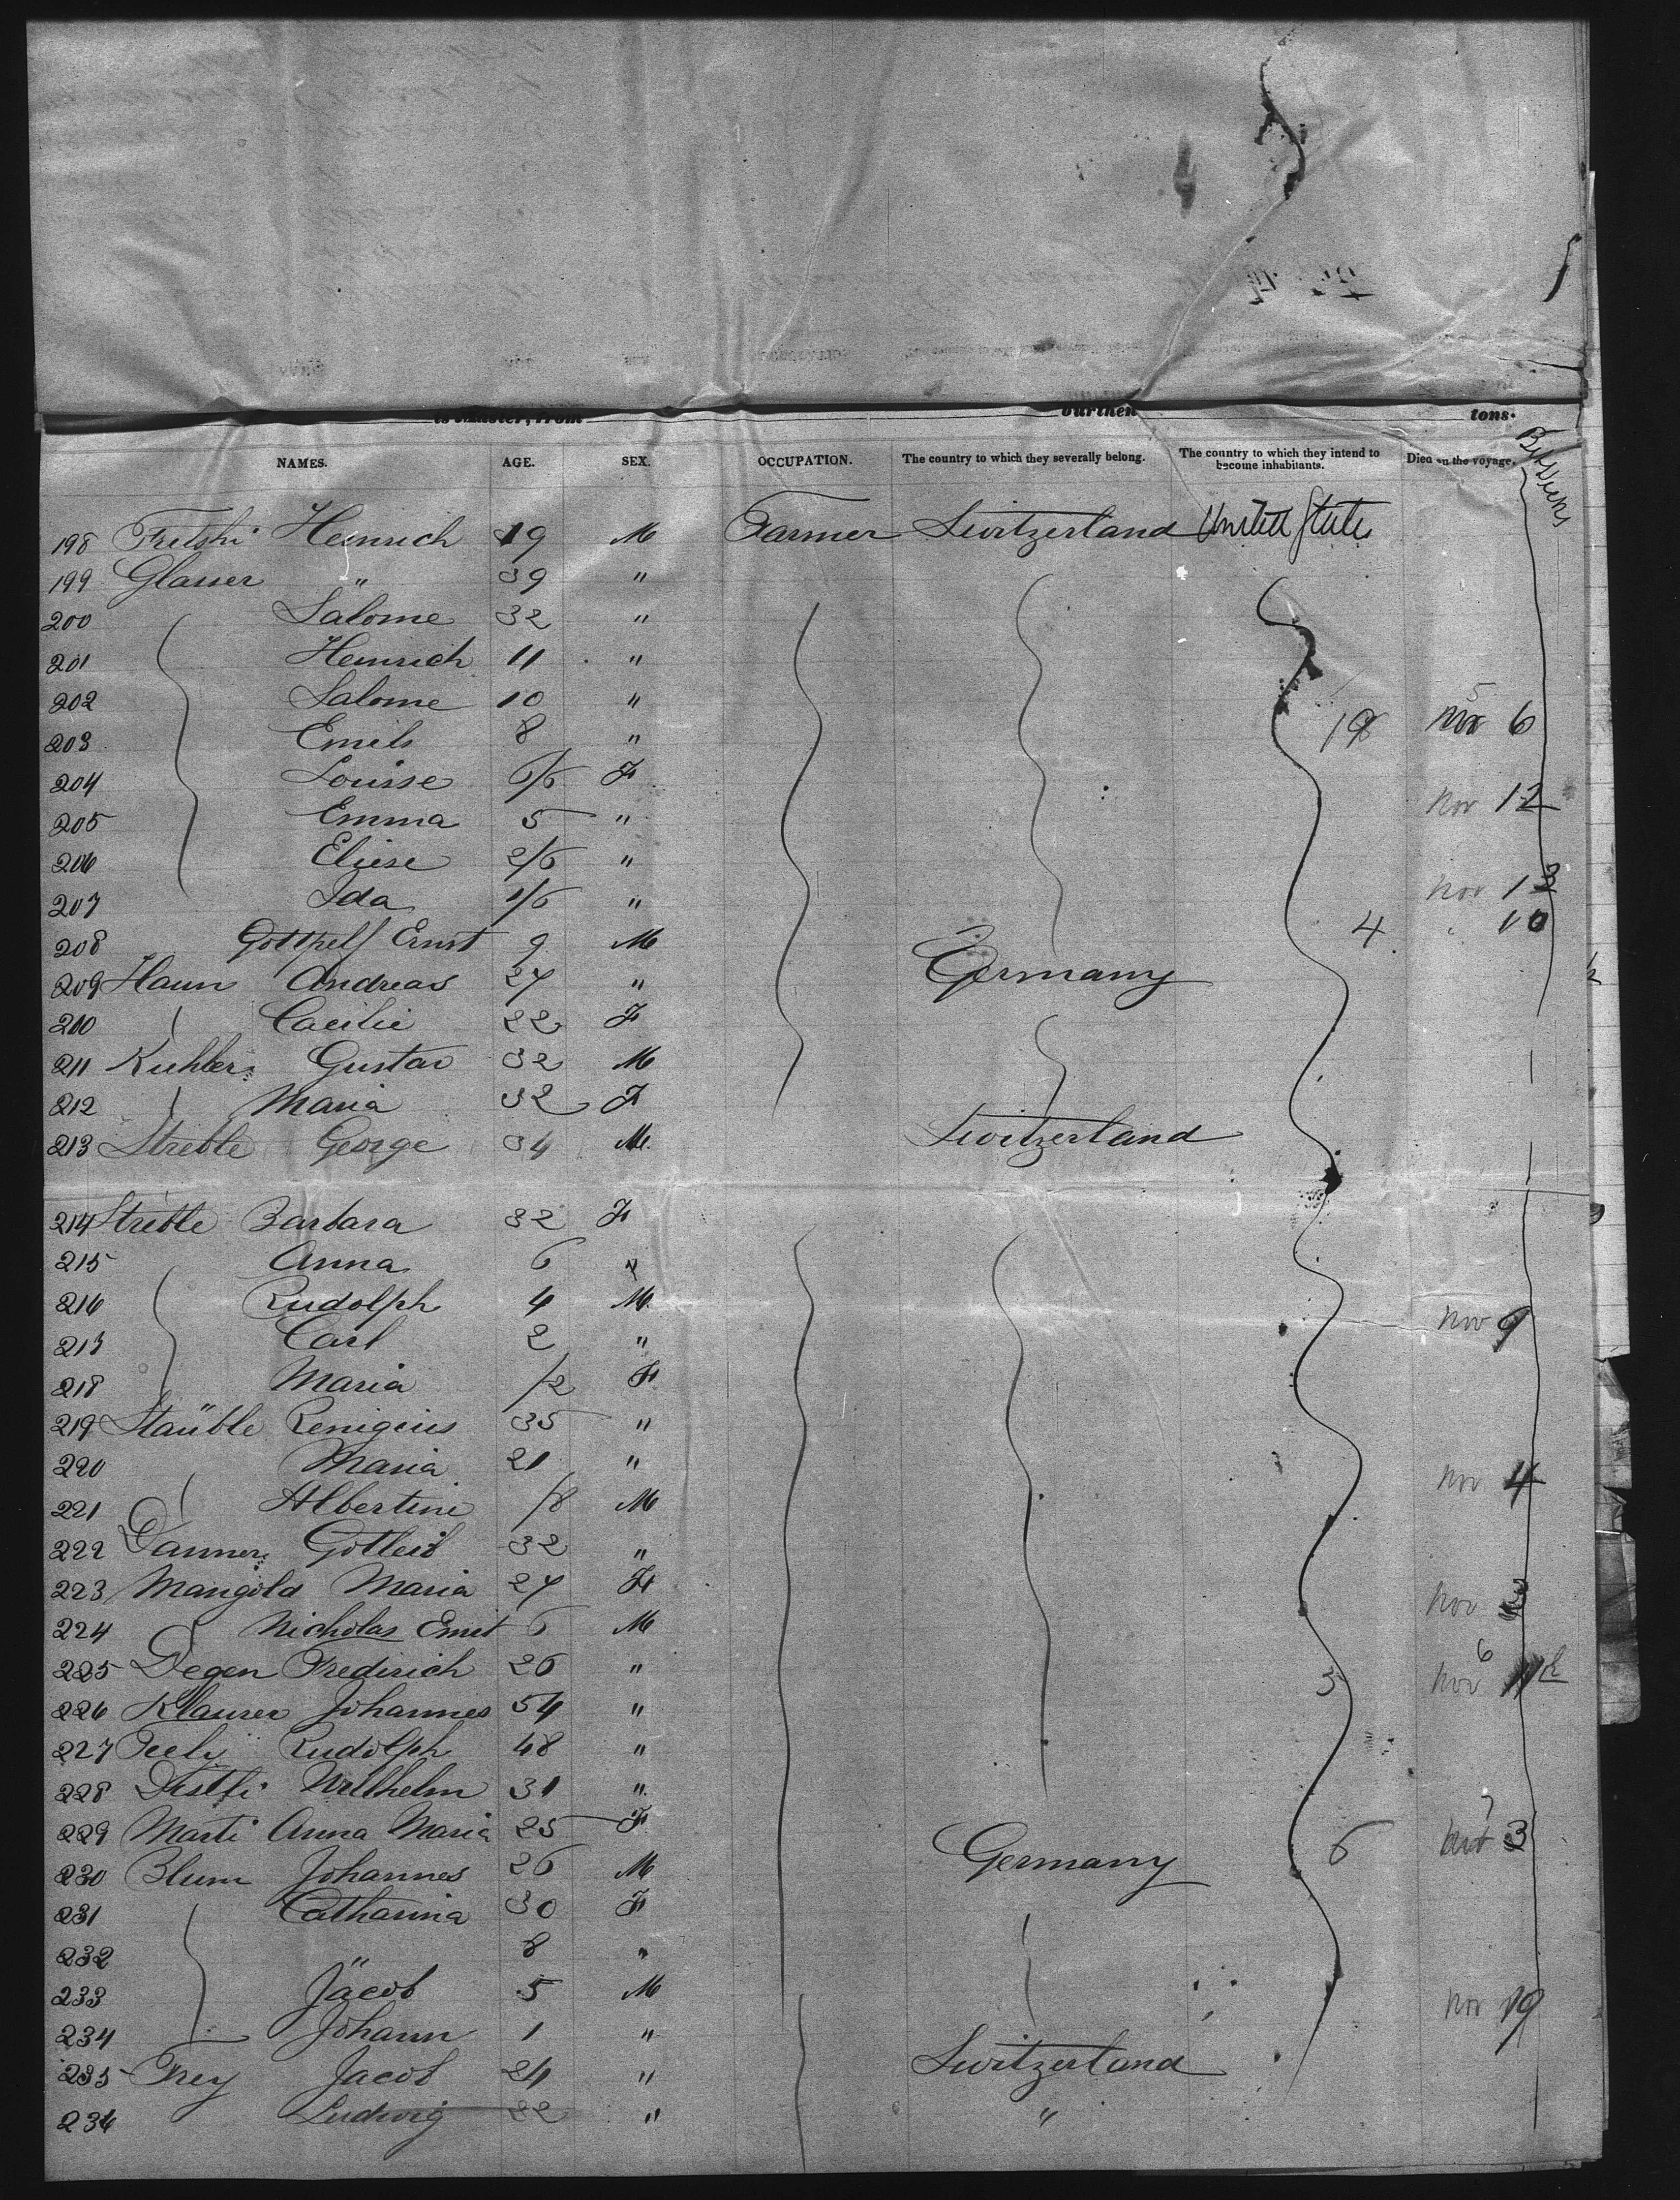 burthen tons.
NAMES. AGE. SEX. OCCUPATION. The country to which they severally belong. The country to which they intend to become inhabitants. Died on the voyage.
198 Heinrich 19 M Farmer Switzerland United States
199 Glasser " 39 "
200 Salome 32 "
201 Heinrich 11 "
202 Salome 10 "
203 Emils 8 " 6
204 Louise 6/6 F Nov 12
205 Emma 5 "
206 Eliese 2/6 "
207 Ida 1/6 " Nov 13
208 Gotthelf Ernst 9 M 4 10
209 Haun Andreas 27 " Germany
210 Caecilie 22 F
211 Kuhler Gustav 32 M
212 Maria 32 F
213 Streble George 34 M. Switzerland
214 Streble Barbara 32 F
215 Anna 6 "
216 Rudolph 4 M. Nov 9
217 Carl 2 "
218 Maria /2 F
219 Staüble Remigius 35 "
220 Maria 21 " Nov 4
221 Albertine /8 M
222 Danner Gotleib 32 "
223 Mangold Maria 27 F Nov 3
224 Nicholas Emil 6 M
225 Degen Frederich 26 " 5 Nov
226 Klauser Johannes 54 "
227 Rudolph 48 "
228 Distli Willhelm 31 "
229 Marti Anna Maria 25 F 3
230 Blum Johannes 26 M Germany 6
231 Catharina 30 F
232 " 8 "
233 Jacob 5 M Nov 19
234 Johann 1 "
235 Frey Jacob 24 " Switzerland
236 Ludwig 22 " "